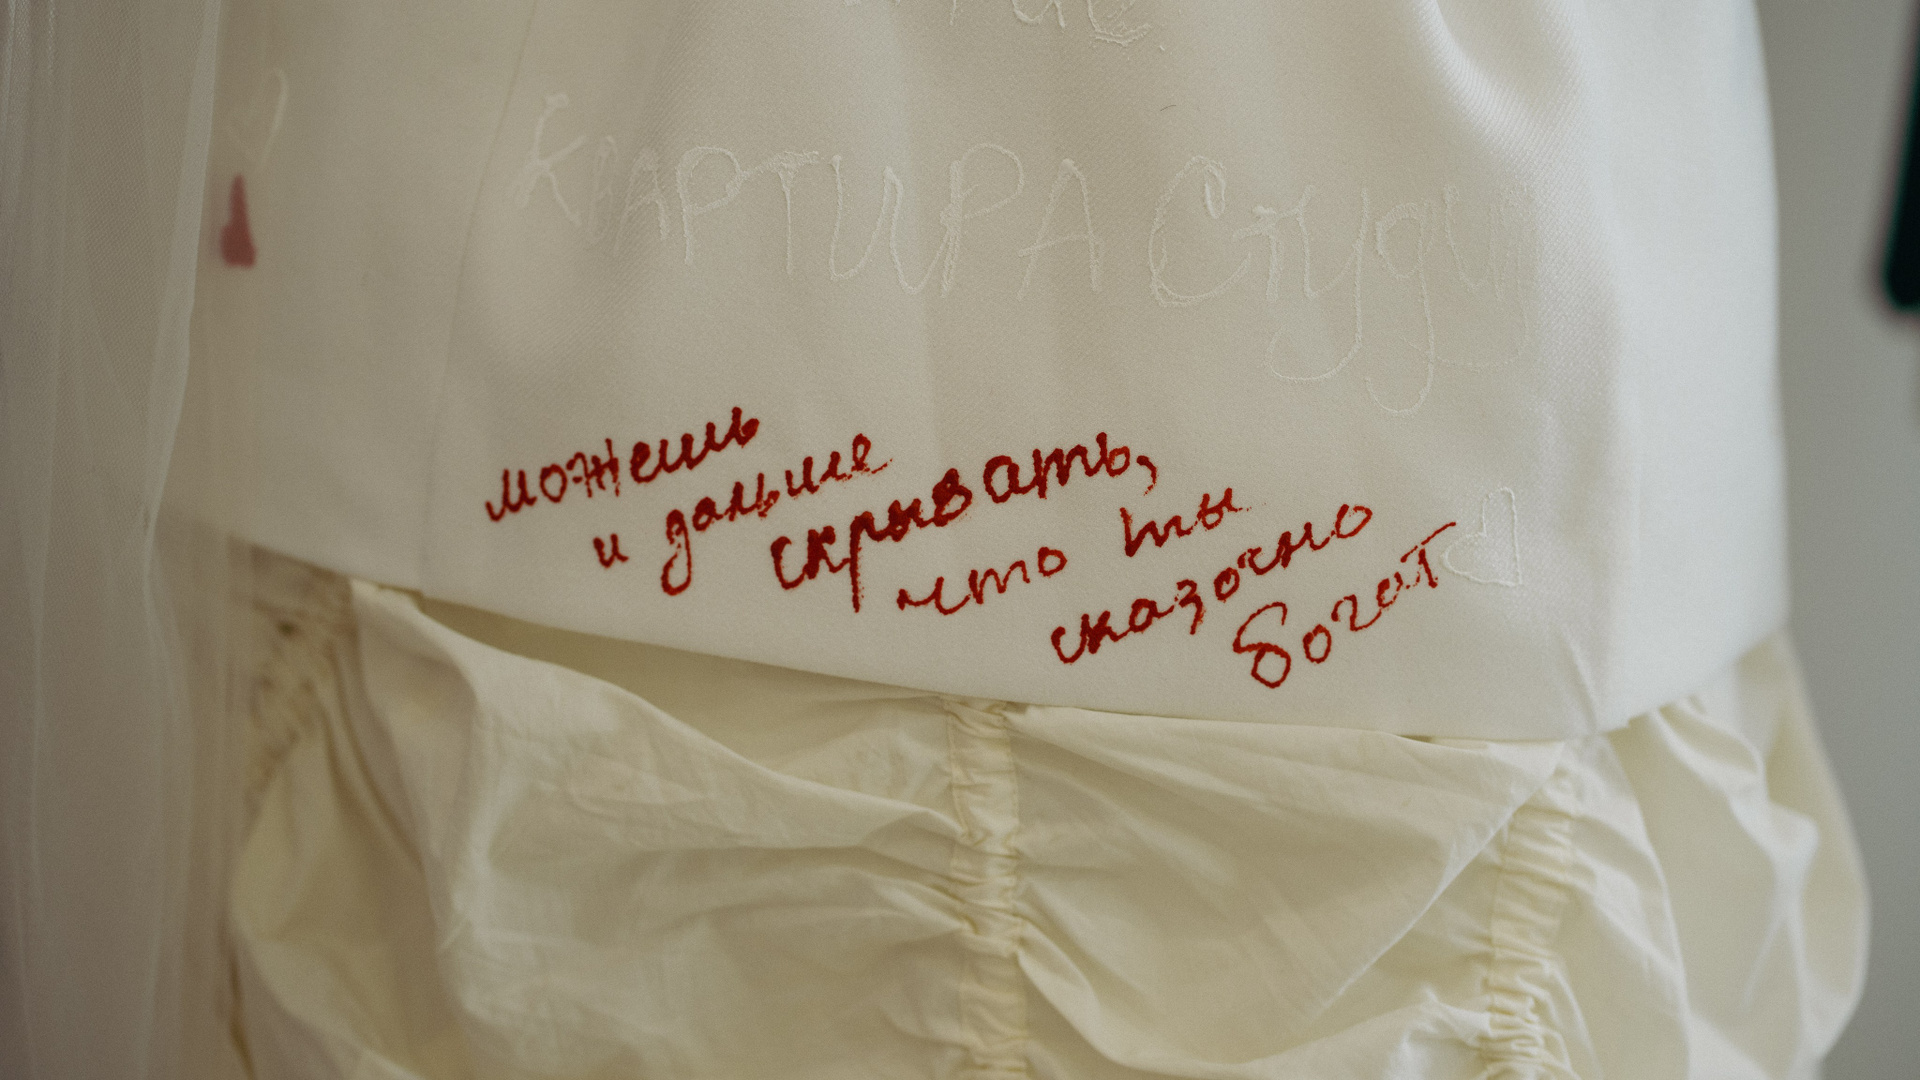 КВАРТИРА Студи
можешь
и дальше
скрывать,
что ты
сказочно
богат